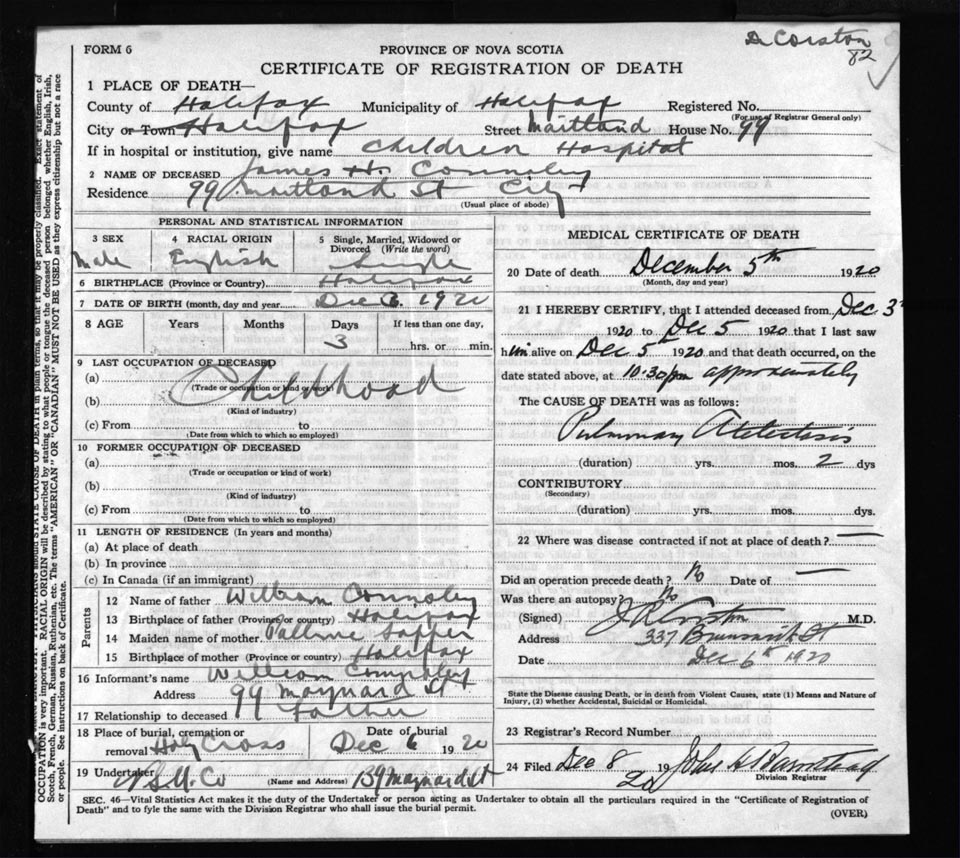 Dr Corston
82
FORM 6
PROVINCE OF NOVA SCOTIA
CERTIFICATE OF REGISTRATION OF DEATH
1 PLACE OF DEATH—
County of Halifax Municipality of Halifax Registered No.
(For use of Registrar General only)
City or Town Halifax Street Maitland House No. 99
If in hospital or institution, give name Children Hospital
2 NAME OF DECEASED James H. Connoley
Residence 99 Maitland St City
(Usual place of abode)
PERSONAL AND STATISTICAL INFORMATION
3 SEX 4 RACIAL ORIGIN 5 Single, Married, Widowed or Divorced (Write the word)
Male English Single
6 BIRTHPLACE (Province or Country) Halifax
7 DATE OF BIRTH (month, day and year) Dec 1920
8 AGE Years Months Days If less than one day,
3 hrs. or min.
9 LAST OCCUPATION OF DECEASED
(a) Childhood
(Trade or occupation or kind of work)
(b)
(Kind of industry)
(c) From to
(Date from which to which so employed)
10 FORMER OCCUPATION OF DECEASED
(a)
(Trade or occupation or kind of work)
(b)
(Kind of industry)
(c) From to
(Date from which to which so employed)
11 LENGTH OF RESIDENCE (In years and months)
(a) At place of death
(b) In province
(c) In Canada (if an immigrant)
Parents
12 Name of father William Connoley
13 Birthplace of father (Province or country) Halifax
14 Maiden name of mother
15 Birthplace of mother (Province or country) Halifax
16 Informant's name William Connoley
Address 99 Maynard St
17 Relationship to deceased Father
18 Place of burial, cremation or removal Holy Cross Date of burial Dec 6 1920
19 Undertaker Co (Name and Address) Maynard St
MEDICAL CERTIFICATE OF DEATH
20 Date of death December 5th 1920
(Month, day and year)
21 I HEREBY CERTIFY, that I attended deceased from Dec 3rd
1920 to Dec 5 1920 that I last saw
him alive on Dec 5th 1920 and that death occurred, on the
date stated above, at 10:30 pm approximately
The CAUSE OF DEATH was as follows:
Pulmonary Atelectasis
(duration) yrs. mos. 2 dys
CONTRIBUTORY
(Secondary)
(duration) yrs. mos. dys.
22 Where was disease contracted if not at place of death? —
Did an operation precede death? No Date of —
Was there an autopsy? No
(Signed) Corston M.D.
Address 337 Brunswick St
Date Dec 6th 1920
State the Disease causing Death, or in death from Violent Causes, state (1) Means and Nature of
Injury, (2) whether Accidental, Suicidal or Homicidal.
23 Registrar's Record Number
24 Filed Dec 8 1920 John H Barnstead
Division Registrar
SEC. 46—Vital Statistics Act makes it the duty of the Undertaker or person acting as Undertaker to obtain all the particulars required in the "Certificate of Registration of
Death" and to fyle the same with the Division Registrar who shall issue the burial permit.
(OVER)
OCCUPATION is very important. RACIAL ORIGIN will be described by stating to what people or tongue the deceased person belonged whether English, Irish,
Scotch, French, German, Russian, Ruthenian, etc. The terms "AMERICAN" OR "CANADIAN" MUST NOT BE USED as they express citizenship but not a race
or people. See instructions on back of Certificate.